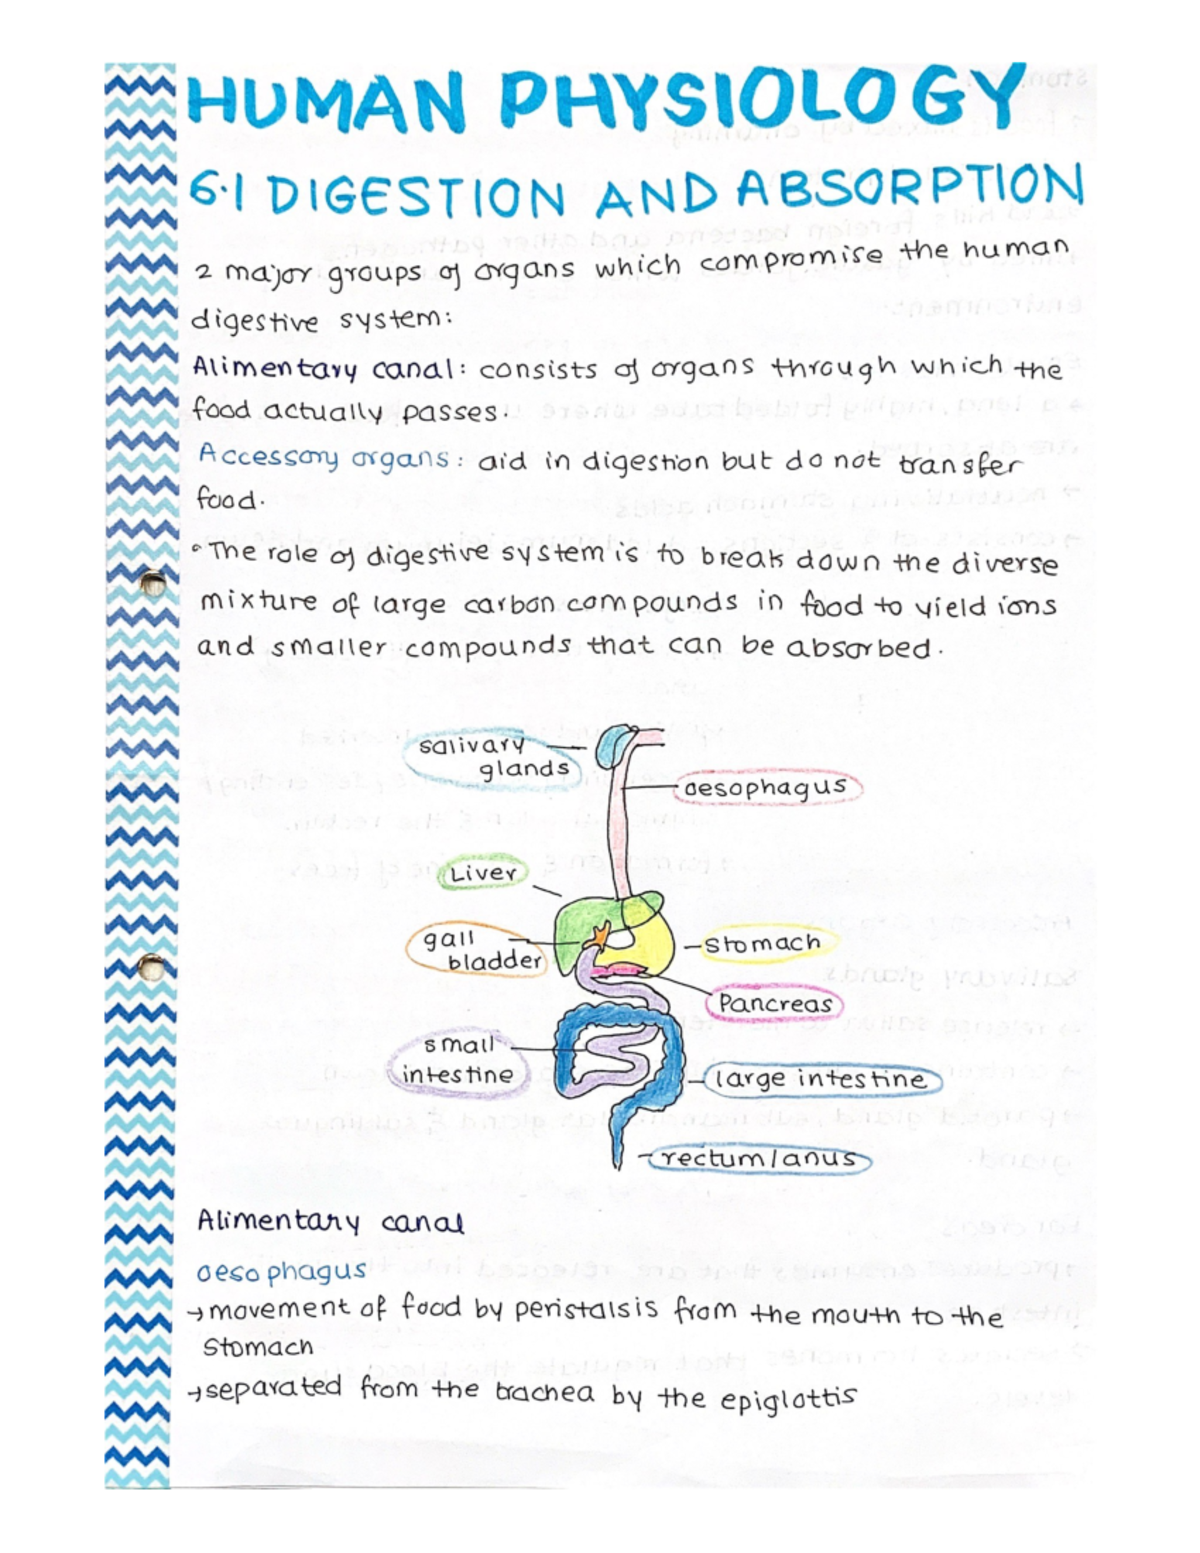 HUMAN PHYSIOLOGY
6.1 DIGESTION AND ABSORPTION
2 major groups of organs which compromise the human
digestive system:
Alimentary canal: consists of organs through which the
food actually passes.
Accessory organs: aid in digestion but do not transfer
food.
°The role of digestive system is to break down the diverse
mixture of large carbon compounds in food to yield ions
and smaller compounds that can be absorbed.
salivary
glands
oesophagus
Liver
gall
bladder
stomach
Pancreas
small
intestine
large intestine
rectum/anus
Alimentary canal
oesophagus
→movement of food by peristalsis from the mouth to the
stomach
→separated from the trachea by the epiglottis